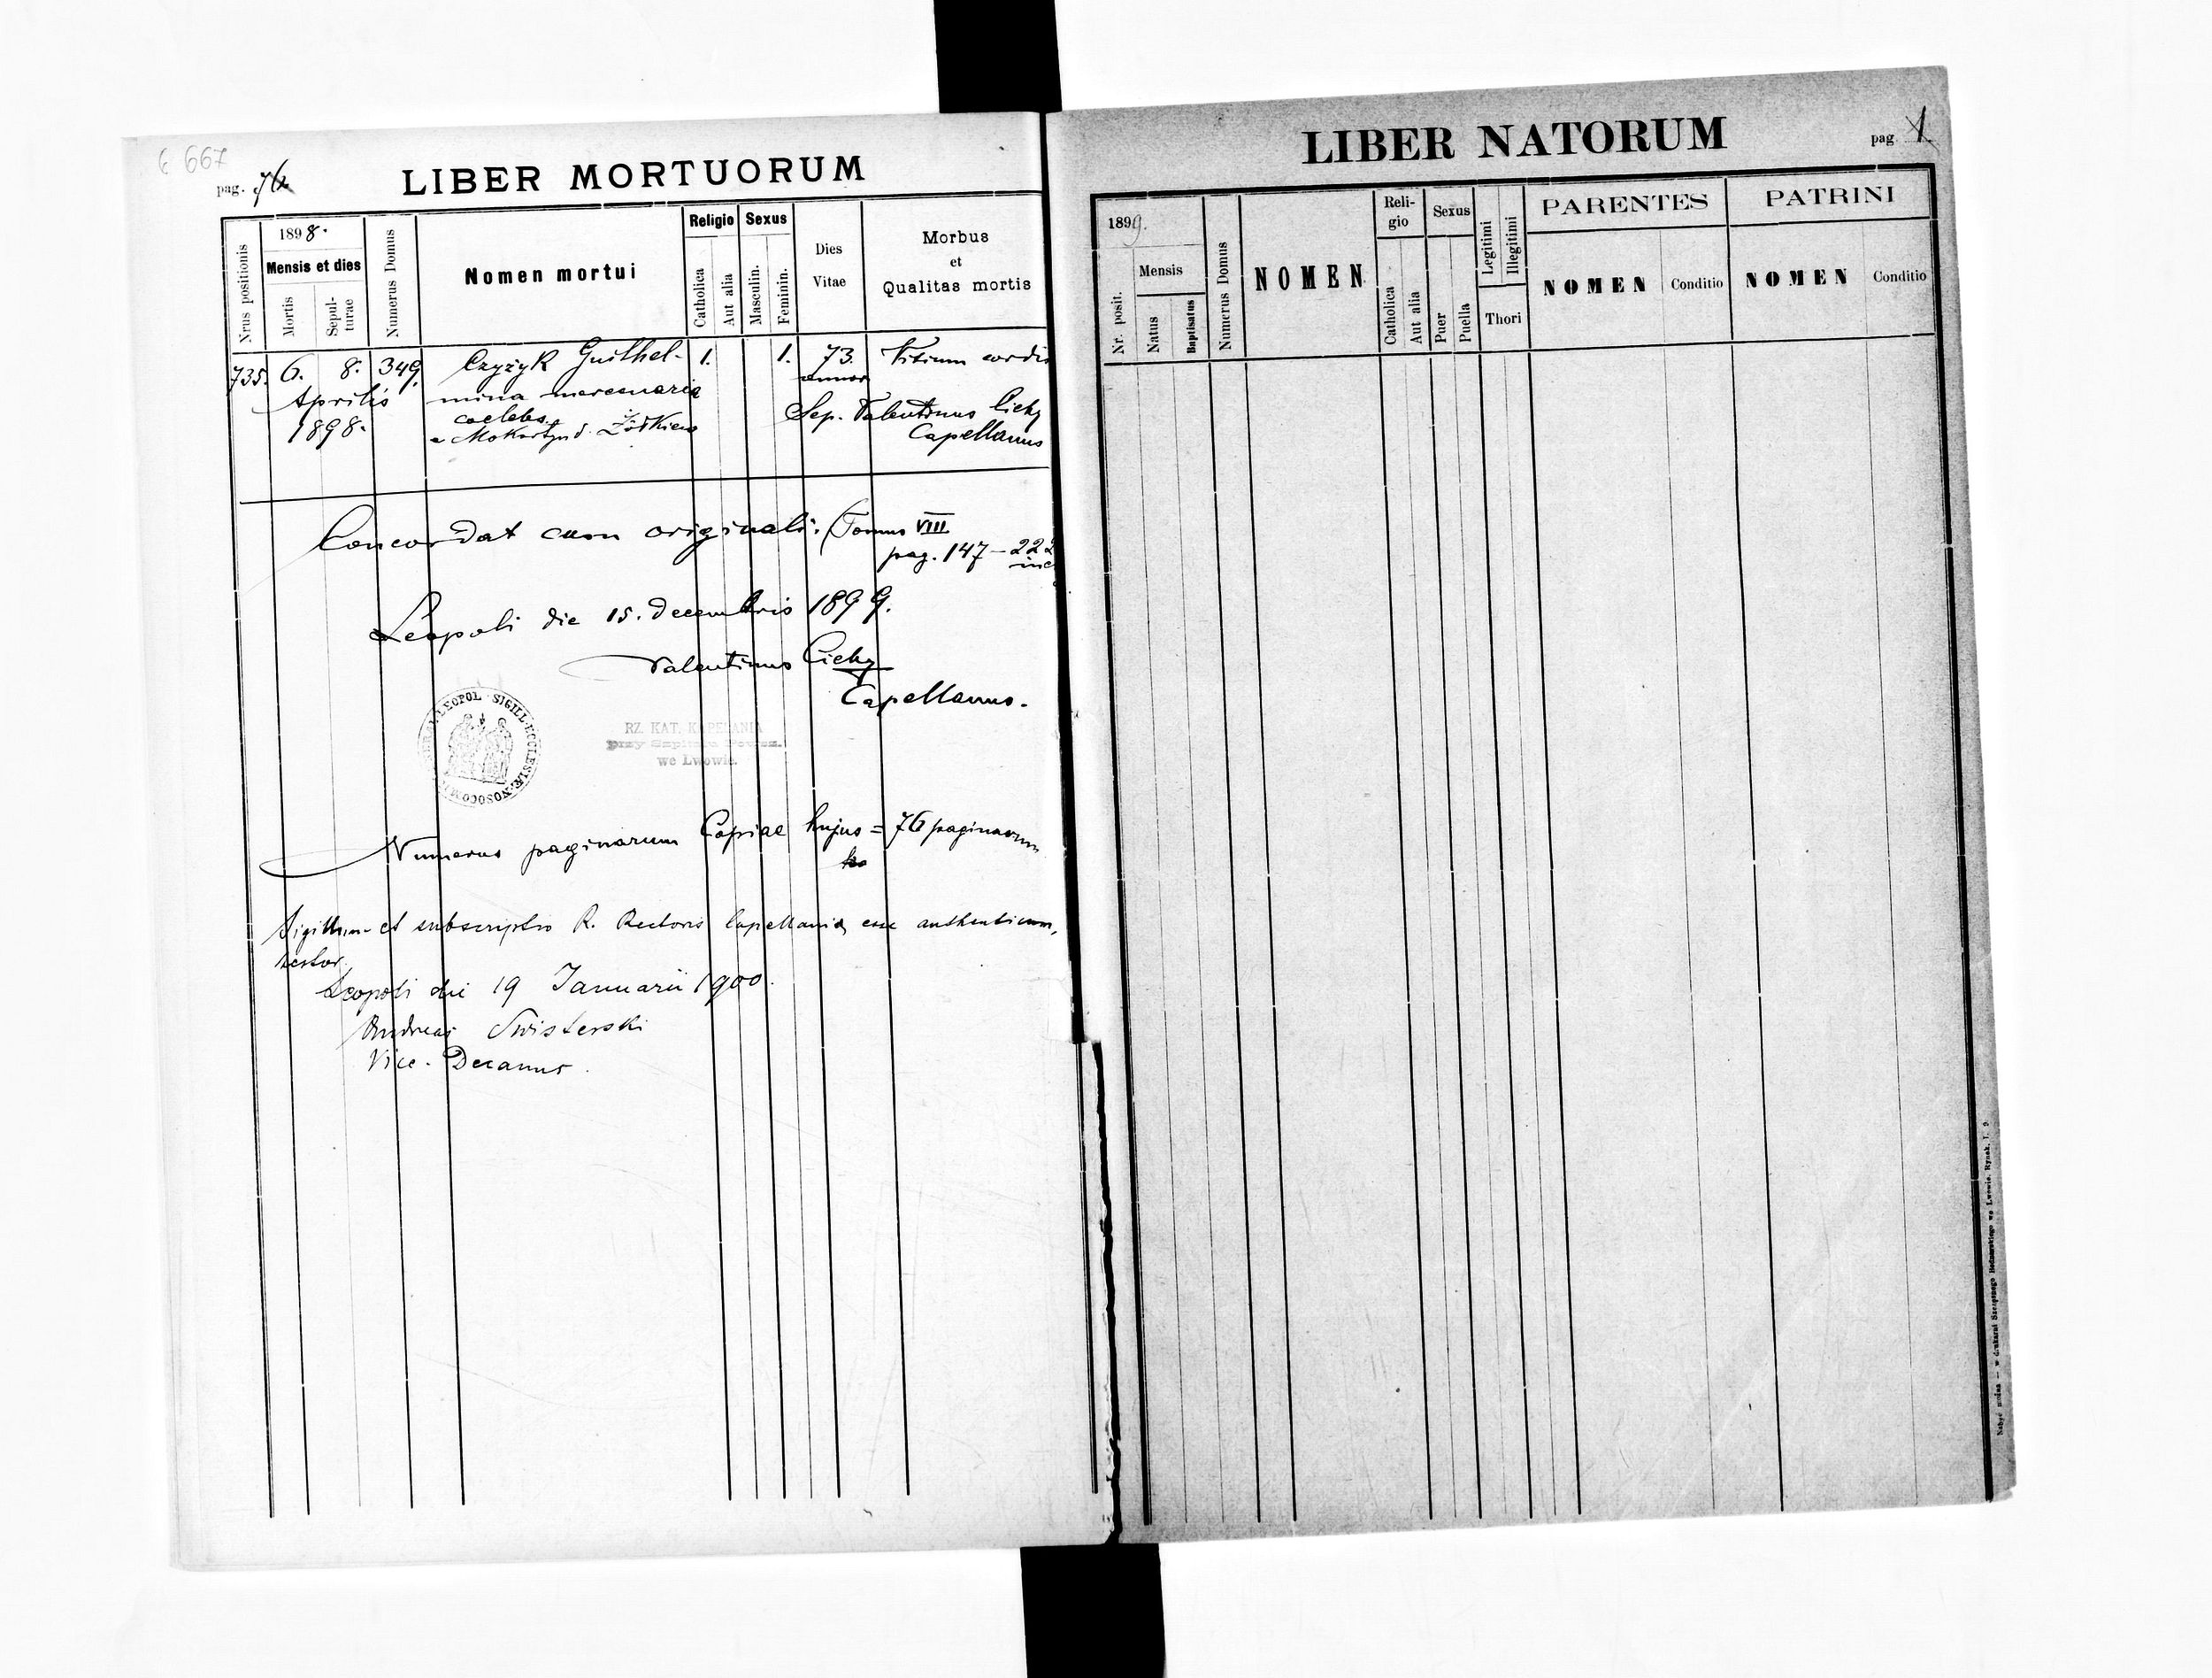 6 667
pag. 76
LIBER MORTUORUM
Nrus positionis
1898.
Mensis et dies
Mortis
Sepulturae
Numerus Domus
Nomen mortui
Religio
Catholica
Aut alia
Sexus
Masculin.
Feminin.
Dies
Vitae
Morbus
et
Qualitas mortis
735. 6. 8. 349. Czyżyk Guilhel- 1. 1. 73. Vitium cordis
Aprilis mina mercenaria annor
1898. coelebs Sep. Valentinus Cichy
e Mokrotyn d. Żółkiew Capellanus
Concordat cum originali: Tomus VIII
pag. 147 – 222
Leopoli die 15. Decembris 1899.
Valentinus Cichy
Capellanus.
LEOPOL · SIGILL · ECCLESIÆ · NOSOCOM
RZ. KAT. KAPELANIA
przy Szpitalu Powsz.
we Lwowie.
Numerus paginarum Copiae hujus = 76 paginarum
Sigillum et subscriptio R. Rectoris Capellaniæ esse authenticum,
testor.
Leopoli die 19 Januarii 1900.
Andreas Swisterski
Vice-Decanus.
LIBER NATORUM
pag. 1
1899.
Nr. posit.
Mensis
Natus
Baptisatus
Numerus Domus
NOMEN
Reli-
gio
Catholica
Aut alia
Sexus
Puer
Puella
Legitimi
Illegitimi
Thori
PARENTES
NOMEN
Conditio
PATRINI
NOMEN
Conditio
Nabyć można — w drukarni Szczęsnego Bednarskiego we Lwowie. Rynek. l. 9.